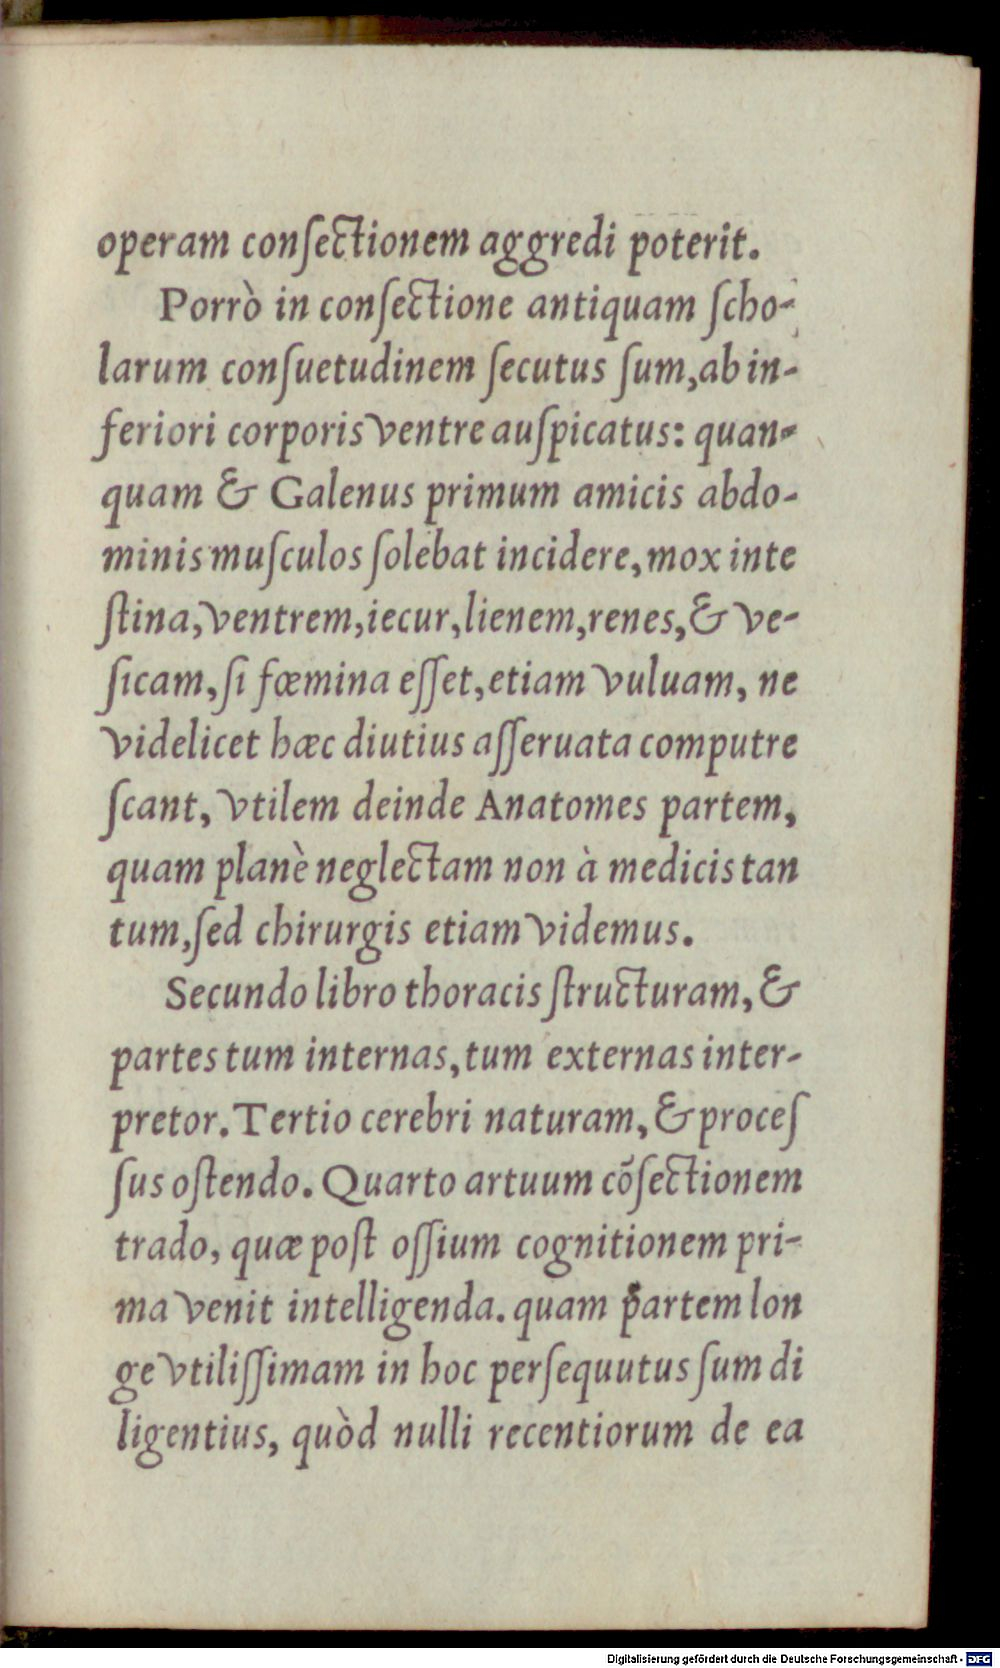 operam conſectionem aggredi poterit.
Porrò in conſectione antiquam ſcho-
larum conſuetudinem ſecutus ſum, ab in-
feriori corporis ventre auſpicatus: quan-
quam & Galenus primum amicis abdo-
minis muſculos ſolebat incidere, mox inte
ſtina, ventrem, iecur, lienem, renes, & ve-
ſicam, ſi fœmina eſſet, etiam vuluam, ne
videlicet hæc diutius aſſeruata computre
ſcant, vtilem deinde Anatomes partem,
quam planè neglectam non à medicis tan
tum, ſed chirurgis etiam videmus.
Secundo libro thoracis ſtructuram, &
partes tum internas, tum externas inter-
pretor. Tertio cerebri naturam, & proceſ
ſus oſtendo. Quarto artuum cõſectionem
trado, quæ poſt oſſium cognitionem pri-
ma venit intelligenda. quam partem lon
ge vtiliſſimam in hoc perſequutus ſum di
ligentius, quòd nulli recentiorum de ea
Digitalisierung gefördert durch die Deutsche Forschungsgemeinschaft - DFG